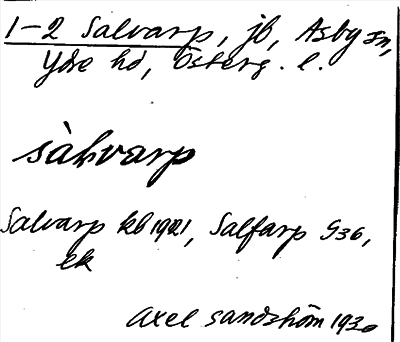 1-2 Salvarp, jb, Asby sn,
Ydre hd, Österg. l.
sàhvarp
Salvarp kb 1921, Salfarp G36,
ek
Axel Sandström 1930